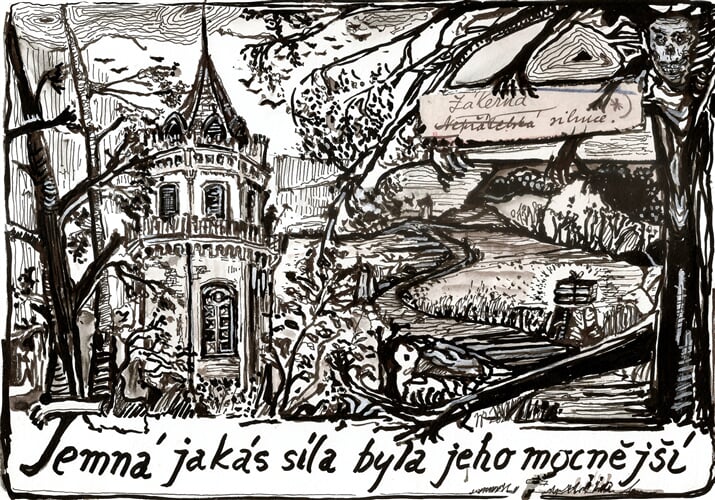 Zákeřná
Nepřátelská silnice.
Temná jakás síla byla jeho mocnější